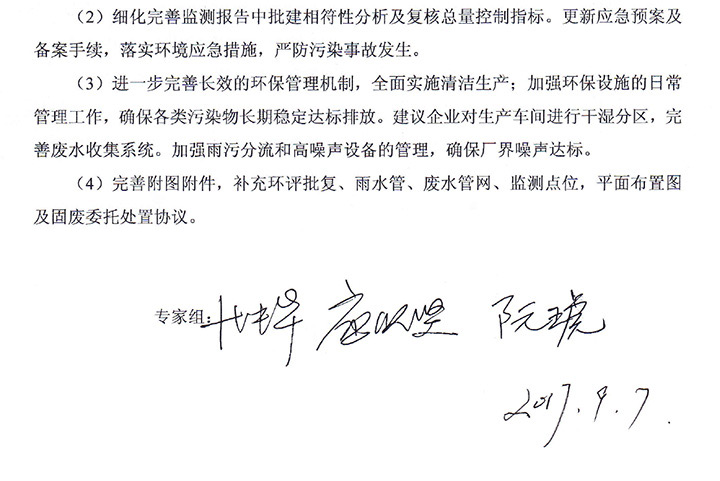 （2）细化完善监测报告中批建相符性分析及复核总量控制指标。更新应急预案及
备案手续，落实环境应急措施，严防污染事故发生。
（3）进一步完善长效的环保管理机制，全面实施清洁生产；加强环保设施的日常
管理工作，确保各类污染物长期稳定达标排放。建议企业对生产车间进行干湿分区，完
善废水收集系统。加强雨污分流和高噪声设备的管理，确保厂界噪声达标。
（4）完善附图附件，补充环评批复、雨水管、废水管网、监测点位，平面布置图
及固废委托处置协议。
专家组： 阮琥
2017.9.7.